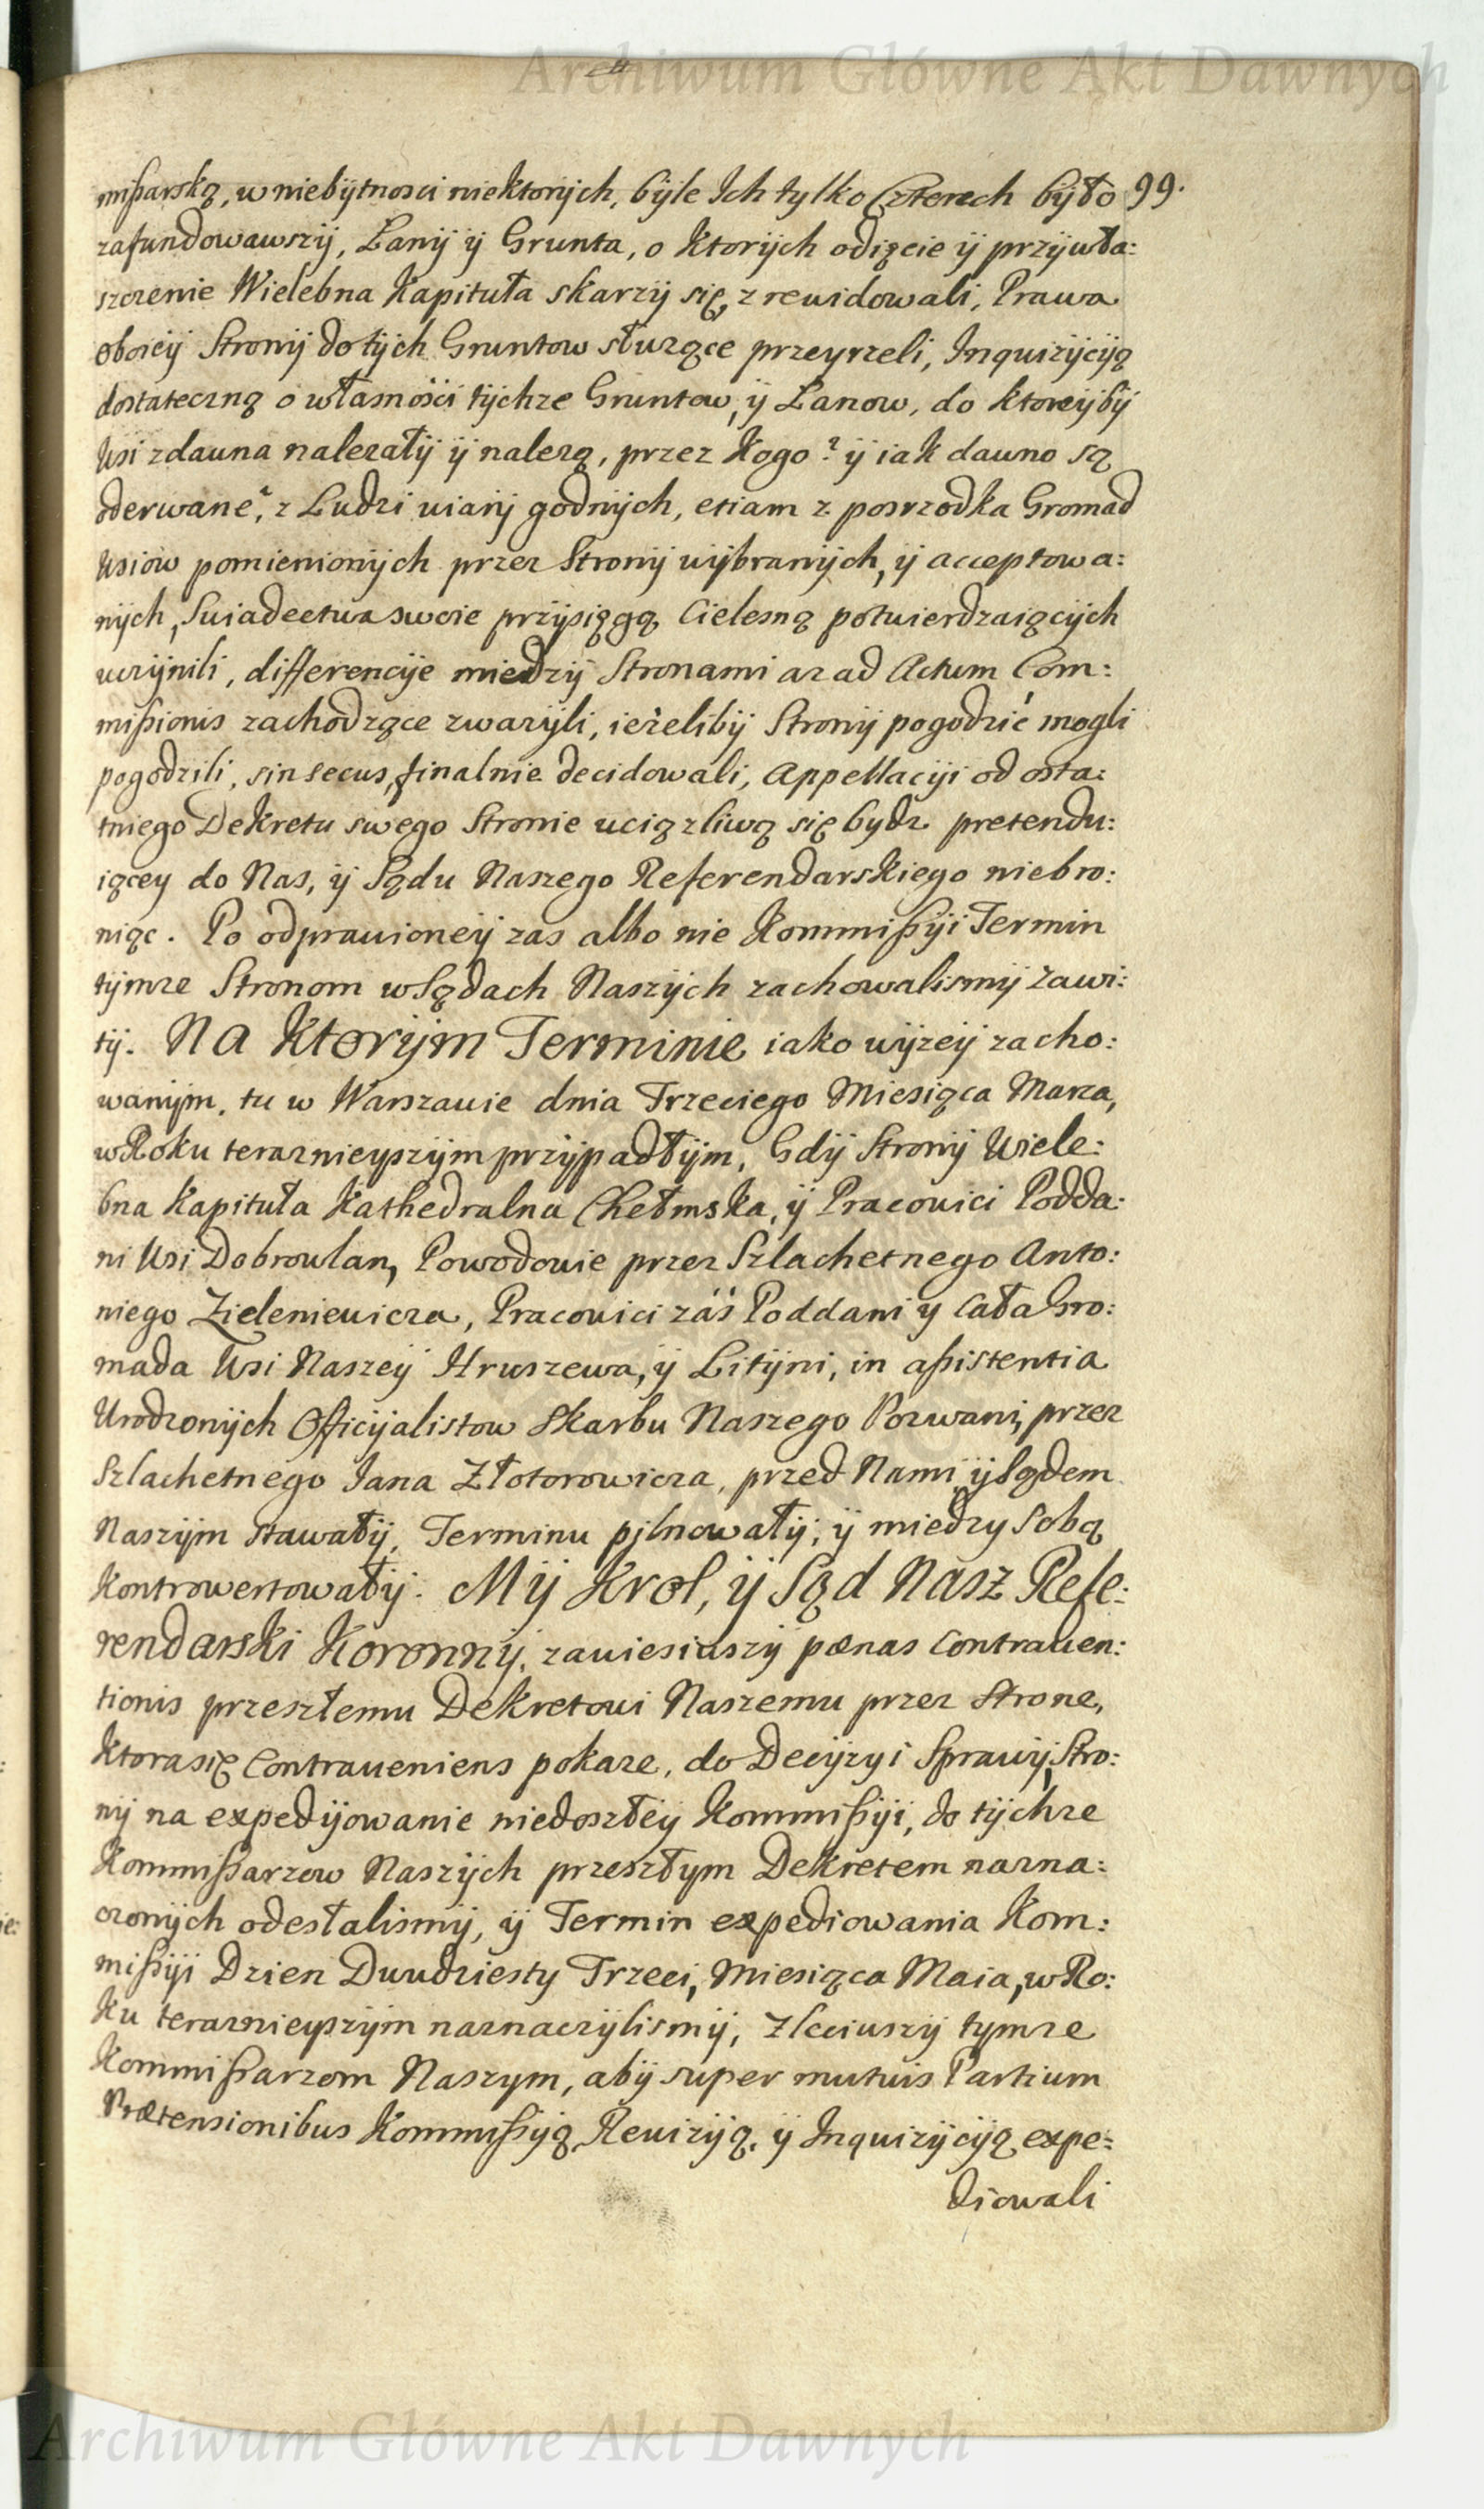 Archiwum Główne Akt Dawnych
mißarską, w niebÿtnosci niektorÿch, bÿle Ich tylko Czterech bÿło 99.
zafundowawszÿ, Łanÿ ÿ Grunta, o ktorÿch odięcie ÿ przÿwła:
szczenie Wielebna Kapituła skarzÿ się, zrewidowali, Prawa
oboieÿ Stronÿ do tÿch Gruntow słuzące przeyrzeli, Inquizÿcÿą
dostateczną o własności tÿchze Gruntow, ÿ Łanow, do ktoreÿ bÿ
Wsi zdawna nalezałÿ ÿ nalezą, przez kogo? ÿ iak dawno są
oderwane? z Ludzi wiarÿ godnÿch, etiam z posrzodka Gromad
Wsiow pomienionÿch przez Stronÿ wÿbranÿch, ÿ acceptowa:
nÿch, Swiadectwa swoie przÿsięgą Cielesną potwierdzaiącÿch
uczÿnili, differencÿe miedzÿ Stronami az ad Actum Com:
mißionis zachodzące zwazÿli, ieżelibÿ Stronÿ pogodzić mogli
pogodzili, sin secus, finalnie decidowali, Appellacÿi od osta:
tniego Dekretu swego Stronie uciązliwą się bydz pretendu:
iącey do Nas, ÿ Sądu Naszego Referendarskiego niebro:
niąc. Po odprawioneÿ zas albo nie Kommißÿi Termin
tÿmze Stronom w Sądach Naszÿch zachowalismÿ zawi:
tÿ. Na Ktorÿm Terminie iako wÿzeÿ zacho:
wanÿm, tu w Warszawie dnia Trzeciego Miesiąca Marca,
w Roku teraznieyszÿm przÿpadłÿm, Gdÿ Stronÿ Wiele:
bna Kapituła Kathedralna Chełmska, ÿ Pracowici Podda:
ni Wsi Dobrowlan, Powodowie przez Szlachetnego Anto:
niego Zieleniewicza, Pracowici záś Poddani y cała Gro:
mada Wsi Naszeÿ Hruszewa, ÿ Litÿni, in aßistentia
Urodzonÿch Officÿalistow Skarbu Naszego Pozwani, przez
Szlachetnego Jana Złotorowicza, przed Nami, ÿ Sądem
Naszÿm stawałÿ, Terminu pilnowałÿ, ÿ miedzy Sobą
kontrowertowałÿ. Mÿ Krol, ÿ Sąd Nasz Refe:
rendarski Koronnÿ, zawiesiwszÿ pœnas contraven:
tionis przeszłemu Dekretowi Naszemu przez Strone,
ktora się Contraveniens pokaze, do Decÿzyi Sprawÿ, Stro:
nÿ na expedÿowanie niedoszłeÿ Kommißÿi, do tÿchze
Kommißarzow Naszÿch przeszłym Dekretem nazna:
czonÿch odesłalismÿ, ÿ Termin expediowania Kom:
mißÿi Dzien Dwudziesty Trzeci, Miesiąca Maia, w Ro:
ku teraznieyszÿm naznaczÿlismÿ, Zleciwszÿ tymze
Kommißarzom Naszym, abÿ super mutuis Partium
Prætensionibus Kommißÿą, Rewizÿą, ÿ Inquizÿcÿą expe:
diowali
Archiwum Główne Akt Dawnych